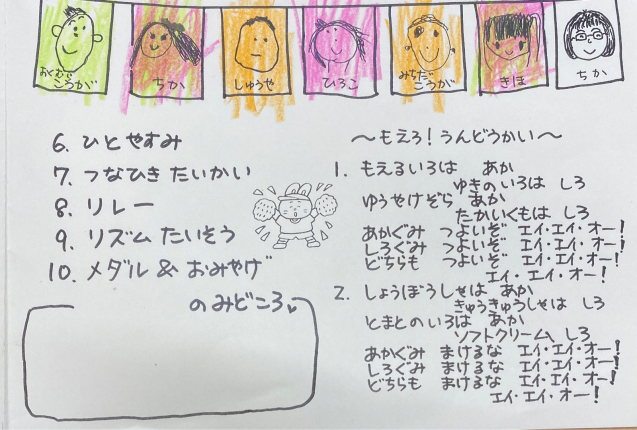 おくむら
こうが
ちか
しゅうや
ひろこ
みちだ
こうが
きほ
ちか
6. ひとやすみ
7. つなひき たいかい
8. リレー
9. リズム たいそう
10. メダル & おみやげ
のみどころ
～もえろ！うんどうかい～
1. もえるいろは あか
ゆきのいろは しろ
ゆうやけぞら あか
たかいくもは しろ
あかぐみ つよいぞ エイ・エイ・オー！
しろぐみ つよいぞ エイ・エイ・オー！
どちらも つよいぞ エイ・エイ・オー！
エイ・エイ・オー！
2. しょうぼうしゃは あか
きゅうきゅうしゃは しろ
とまとのいろは あか
ソフトクリーム しろ
あかぐみ まけるな エイ・エイ・オー！
しろぐみ まけるな エイ・エイ・オー！
どちらも まけるな エイ・エイ・オー！
エイ・エイ・オー！